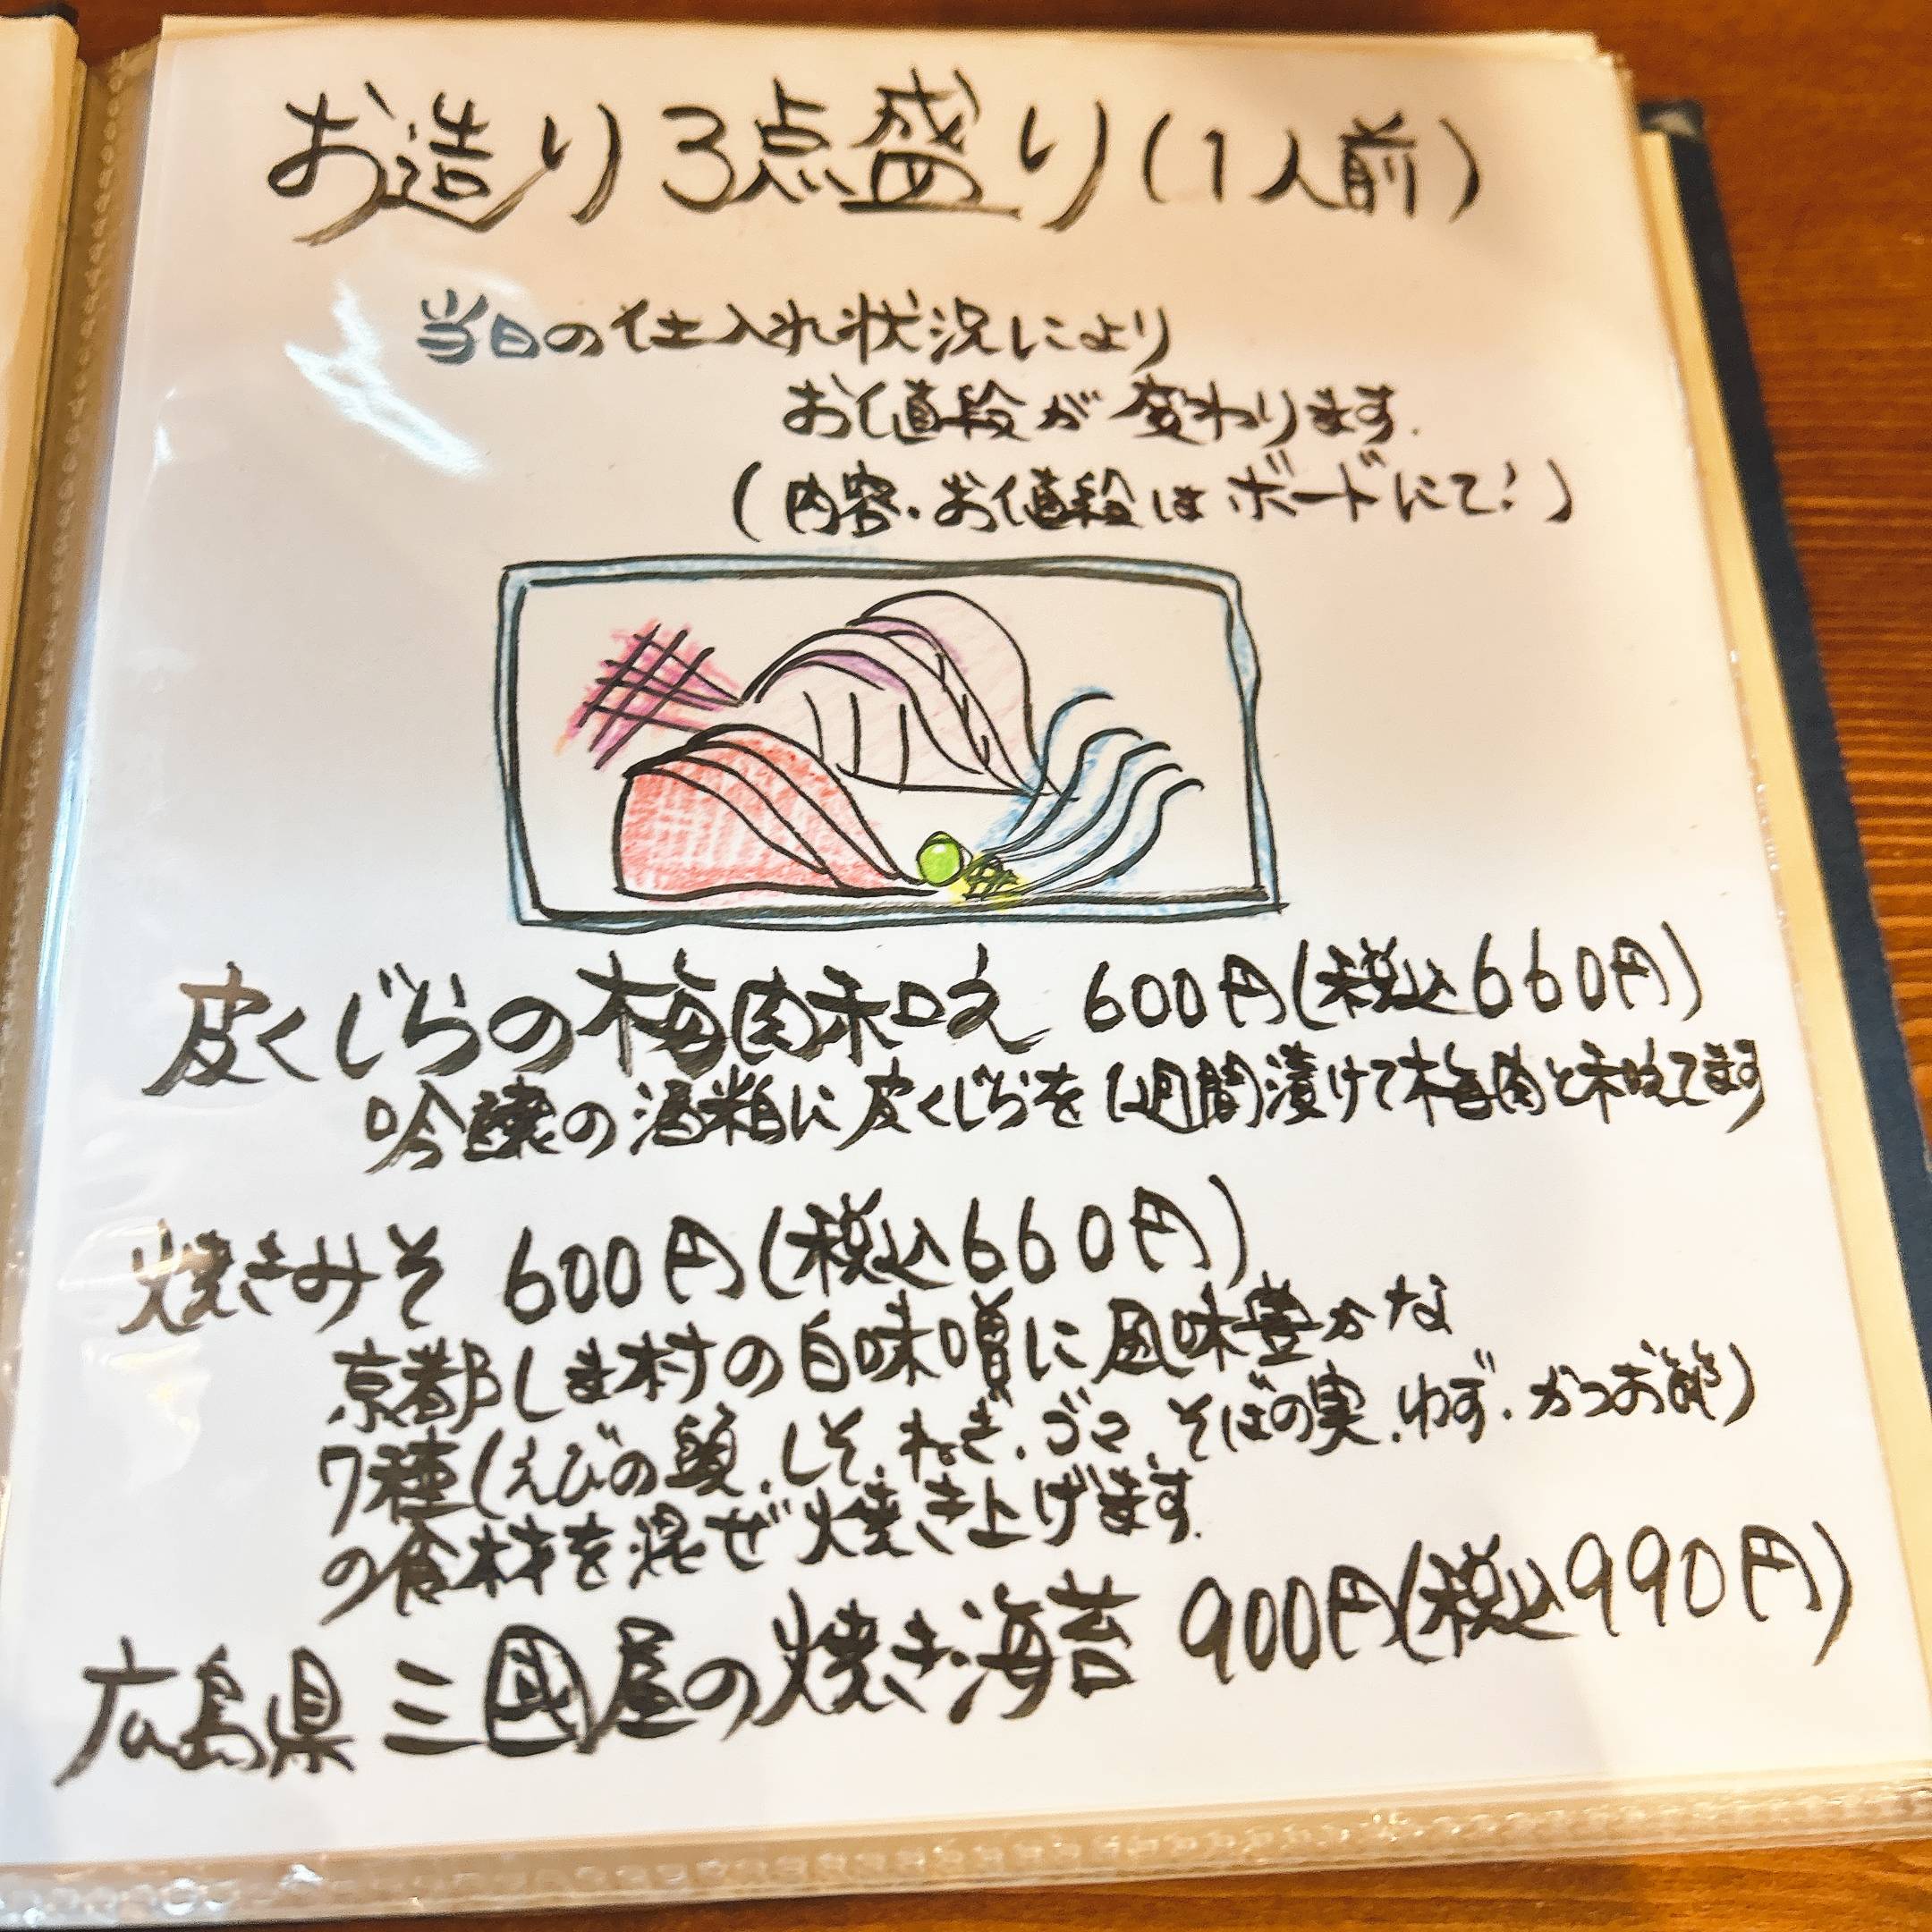 お造り3点盛り(1人前)
当日の仕入れ状況により
お値段が変わります.
(内容・お値段はボードにて!)
皮くじらの梅肉和え 600円(税込660円)
吟醸の酒粕に皮くじらを1週間漬けて梅肉と和えてます
焼きみそ 600円(税込660円)
京都しま村の白味噌に風味豊かな
7種(えびの頭.しそ.ねぎ.ゴマ.そばの実.ゆず.かつお節)
の食材を混ぜ焼き上げます.
広島県三國屋の焼き海苔 900円(税込990円)